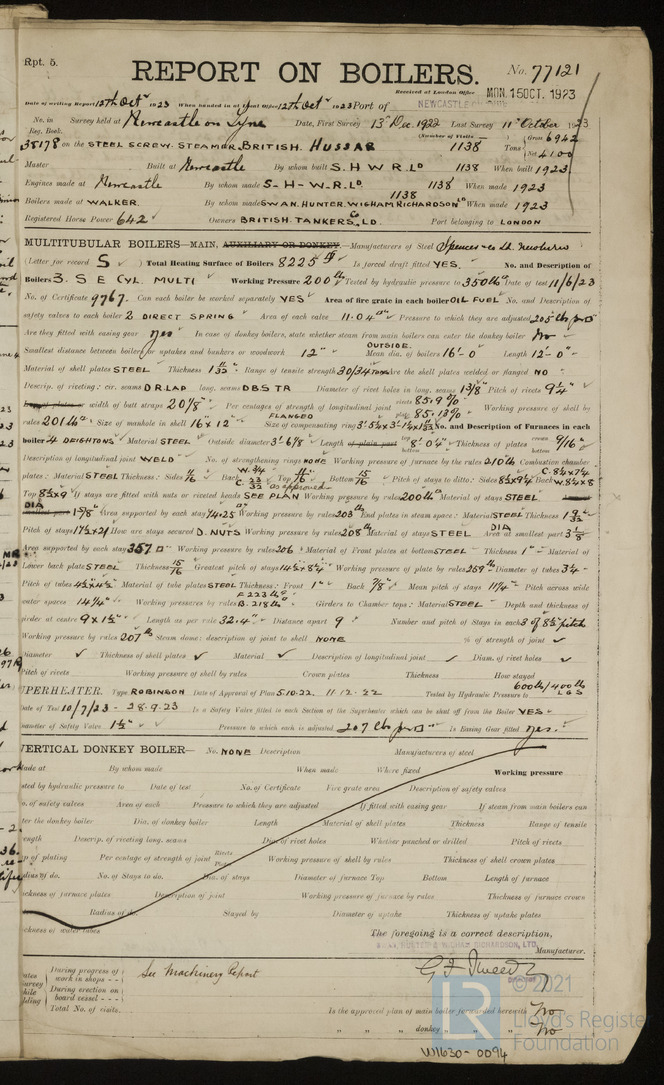 Rpt. 5.
REPORT ON BOILERS.
No. 77121
Received at London Office MON. 15 OCT. 1923
Date of writing Report 12th Oct 1923 When handed in at Local Office 12th Oct 1923 Port of NEWCASTLE
No. in Reg. Book. Survey held at Newcastle on Tyne Date, First Survey 13th Dec. 1922 Last Survey 11th October 1923
(Number of Visits)
38178 on the STEEL SCREW STEAMER BRITISH HUSSAR 1138 Tons Gross 6942 Net 4100
Master Built at Newcastle By whom built S. H W R. Ld 1138 When built 1923
Engines made at Newcastle By whom made S-H-W-R. Ld 1138 When made 1923
Boilers made at WALKER. By whom made SWAN. HUNTER. WIGHAM RICHARDSON Ld 1138 When made 1923
Registered Horse Power 642 Owners BRITISH TANKERS Co LD. Port belonging to LONDON
MULTITUBULAR BOILERS—MAIN, AUXILIARY OR DONKEY.—Manufacturers of Steel
(Letter for record S) Total Heating Surface of Boilers 8225 Is forced draft fitted YES. No. and Description of
Boilers 3. S E CYL. MULTI Working Pressure 200 lb Tested by hydraulic pressure to 350 lb Date of test 11/6/23
No. of Certificate 9767. Can each boiler be worked separately YES Area of fire grate in each boiler OIL FUEL No. and Description of
safety valves to each boiler 2 DIRECT SPRING Area of each valve 11.04 Pressure to which they are adjusted 205 lb
Are they fitted with easing gear yes In case of donkey boilers, state whether steam from main boilers can enter the donkey boiler No
Smallest distance between boilers or uptakes and bunkers or woodwork 12" OUTSIDE. Mean dia. of boilers 16'-0" Length 12'-0"
Material of shell plates STEEL Thickness 1 11/32 Range of tensile strength 30/34 TONS Are the shell plates welded or flanged NO
Descrip. of riveting: cir. seams D R. LAP long. seams DBS TR Diameter of rivet holes in long. seams 1 3/8 Pitch of rivets 9 1/4"
width of butt straps 20 1/8" Per centages of strength of longitudinal joint rivets 85.9% plate 85.13% Working pressure of shell by
rules 201 lb Size of manhole in shell 16 x 12 FLANGED Size of compensating ring No. and Description of Furnaces in each
boiler 4 DEIGHTONS Material STEEL Outside diameter 3'-6 7/8 Length of plain part 8'.0 1/4 Thickness of plates crown bottom 9/16"
Description of longitudinal joint WELD No. of strengthening rings NONE Working pressure of furnace by the rules 210 lb Combustion chamber
plates: Material STEEL Thickness: Sides 11/16 Back Top 11/16 Bottom 15/16 Pitch of stays to ditto: Sides Back
Top 8 1/2 x 9 If stays are fitted with nuts or riveted heads SEE PLAN Working pressure by rules 200 lb Material of stays STEEL
DIA 1 5/8" Area supported by each stay 74.25 Working pressure by rules 203 End plates in steam space: Material STEEL Thickness 1 9/32
Pitch of stays 17 1/2 x 21 How are stays secured D. NUTS Working pressure by rules 208 lb Material of stays STEEL DIA Area at smallest part 3 1/8
Area supported by each stay 357 Working pressure by rules 206 Material of Front plates at bottom STEEL Thickness 1" Material of
Lower back plate STEEL Thickness 15/16 Greatest pitch of stays Working pressure of plate by rules 259 lb Diameter of tubes 3 1/4
Pitch of tubes 4 1/2 x 4 1/2 Material of tube plates STEEL Thickness: Front 1" Back 7/8" Mean pitch of stays 11 1/4" Pitch across wide
water spaces 14 1/4" Working pressures by rules F. 223 lb B. 218 lb Girders to Chamber tops: Material STEEL Depth and thickness of
girder at centre 9 x 1 1/2" Length as per rule 32.4" Distance apart 9 Number and pitch of Stays in each 3 of 8 1/2 pitch
Working pressure by rules 207 lb Steam dome: description of joint to shell NONE % of strength of joint
Diameter Thickness of shell plates Material Description of longitudinal joint Diam. of rivet holes
Pitch of rivets Working pressure of shell by rules Crown plates Thickness How stayed
SUPERHEATER. Type ROBINSON Date of Approval of Plan 5.10.22. 11.12.22 Tested by Hydraulic Pressure to 600 lb/400 lb
Date of Test 10/7/23 - 28.9.23 Is a Safety Valve fitted to each Section of the Superheater which can be shut off from the Boiler YES
Diameter of Safety Valve 1 1/2" Pressure to which each is adjusted 207 lbs Is Easing Gear fitted yes.
VERTICAL DONKEY BOILER— No. NONE Description Manufacturers of steel
Made at By whom made When made Where fixed Working pressure
tested by hydraulic pressure to Date of test No. of Certificate Fire grate area Description of safety valves
No. of safety valves Area of each Pressure to which they are adjusted If fitted with easing gear If steam from main boilers can
enter the donkey boiler Dia. of donkey boiler Length Material of shell plates Thickness Range of tensile
strength Descrip. of riveting long. seams Dia. of rivet holes Whether punched or drilled Pitch of rivets
Lap of plating Per centage of strength of joint Rivets Plates Working pressure of shell by rules Thickness of shell crown plates
Radius of do. No. of Stays to do. Dia. of stays Diameter of furnace Top Bottom Length of furnace
Thickness of furnace plates Description of joint Working pressure of furnace by rules Thickness of furnace crown
Radius of do. Stayed by Diameter of uptake Thickness of uptake plates
Thickness of water tubes
The foregoing is a correct description,
HUNTER & WIGHAM RICHARDSON, LTD. Manufacturer.
Dates of Survey while building
During progress of work in shops - -
During erection on board vessel - - -
Total No. of visits.
See Machinery Report
Is the approved plan of main boiler forwarded herewith No
" " " donkey " " " No
© 2021
LR
Lloyd's Register
Foundation
W1630-0094